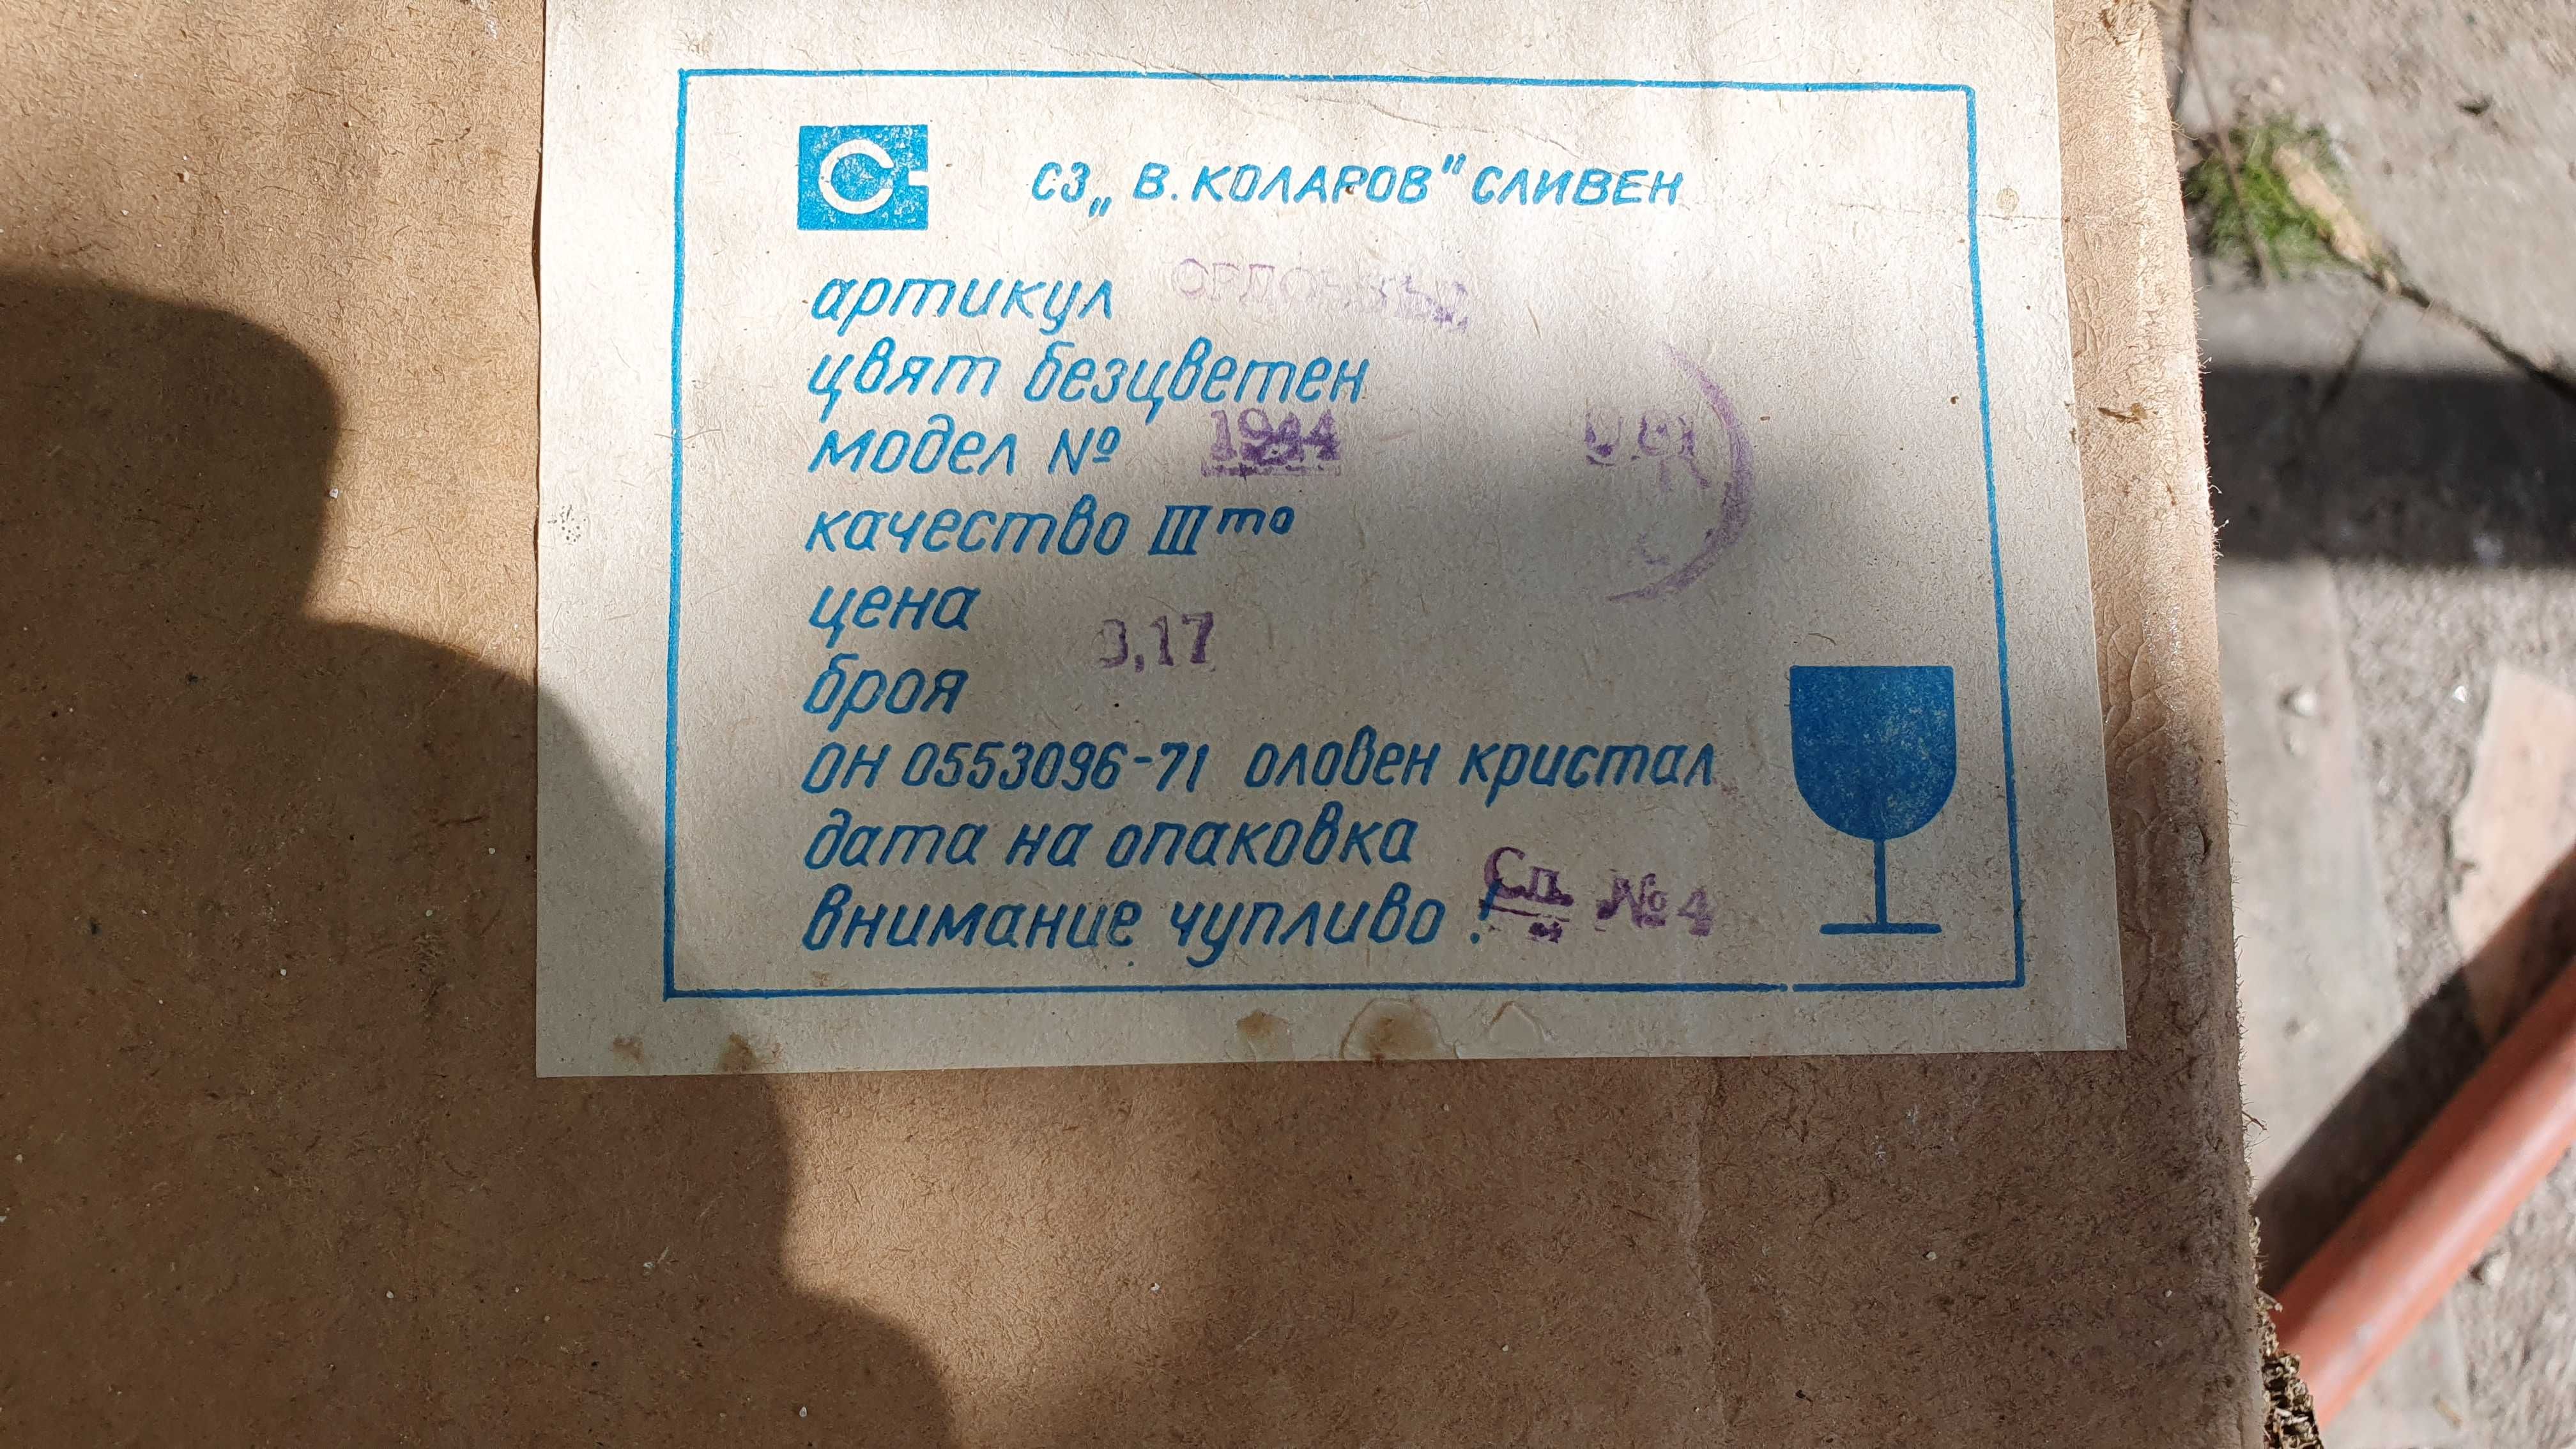 СЗ „В. КОЛАРОВ" СЛИВЕН
артикул
цвят безцветен
модел № 1944
качество III то
цена 3,17
броя
ОН 0553096-71 оловен кристал
дата на опаковка
внимание чупливо ! Сп. № 4